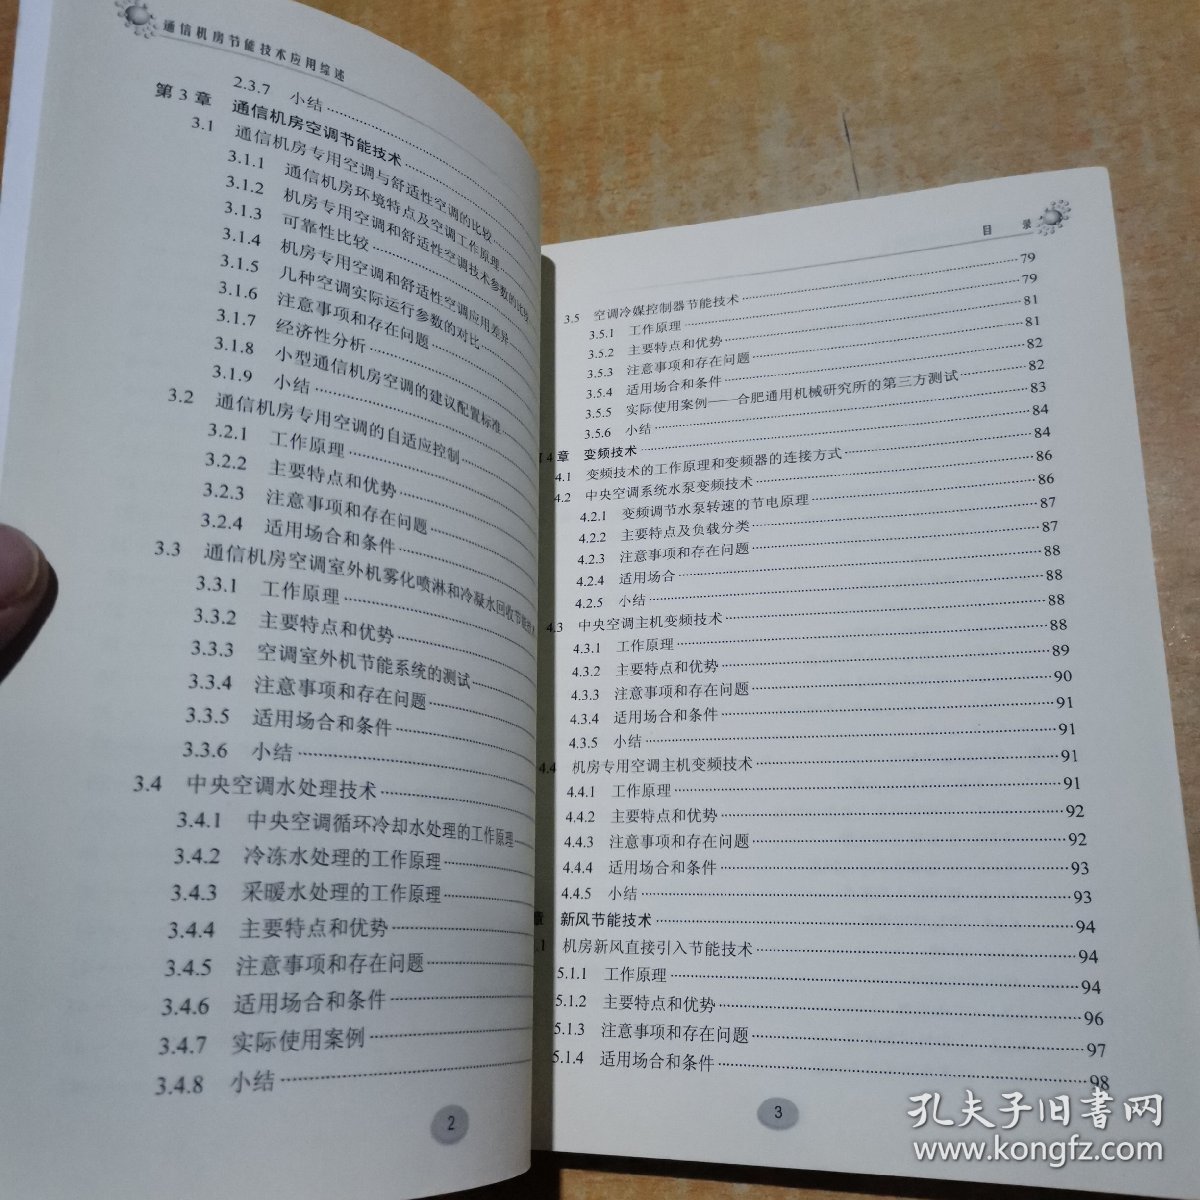 通信机房节能技术应用综述
2.3.7 小结
第3章 通信机房空调节能技术
3.1 通信机房专用空调与舒适性空调的比较
3.1.1 通信机房环境特点及空调工作原理
3.1.2 机房专用空调和舒适性空调技术参数的比较
3.1.3 可靠性比较
3.1.4 机房专用空调和舒适性空调应用差异
3.1.5 几种空调实际运行参数的对比
3.1.6 注意事项和存在问题
3.1.7 经济性分析
3.1.8 小型通信机房空调的建议配置标准
3.1.9 小结
3.2 通信机房专用空调的自适应控制
3.2.1 工作原理
3.2.2 主要特点和优势
3.2.3 注意事项和存在问题
3.2.4 适用场合和条件
3.3 通信机房空调室外机雾化喷淋和冷凝水回收节能技术
3.3.1 工作原理
3.3.2 主要特点和优势
3.3.3 空调室外机节能系统的测试
3.3.4 注意事项和存在问题
3.3.5 适用场合和条件
3.3.6 小结
3.4 中央空调水处理技术
3.4.1 中央空调循环冷却水处理的工作原理
3.4.2 冷冻水处理的工作原理
3.4.3 采暖水处理的工作原理
3.4.4 主要特点和优势
3.4.5 注意事项和存在问题
3.4.6 适用场合和条件
3.4.7 实际使用案例
3.4.8 小结
2
目 录
3.5 空调冷媒控制器节能技术 79
3.5.1 工作原理 79
3.5.2 主要特点和优势 81
3.5.3 注意事项和存在问题 81
3.5.4 适用场合和条件 82
3.5.5 实际使用案例——合肥通用机械研究所的第三方测试 82
3.5.6 小结 83
4章 变频技术 84
4.1 变频技术的工作原理和变频器的连接方式 84
4.2 中央空调系统水泵变频技术 86
4.2.1 变频调节水泵转速的节电原理 86
4.2.2 主要特点及负载分类 87
4.2.3 注意事项和存在问题 87
4.2.4 适用场合 88
4.2.5 小结 88
4.3 中央空调主机变频技术 88
4.3.1 工作原理 88
4.3.2 主要特点和优势 89
4.3.3 注意事项和存在问题 90
4.3.4 适用场合和条件 91
4.3.5 小结 91
4.4 机房专用空调主机变频技术 91
4.4.1 工作原理 91
4.4.2 主要特点和优势 92
4.4.3 注意事项和存在问题 92
4.4.4 适用场合和条件 93
4.4.5 小结 93
章 新风节能技术 94
.1 机房新风直接引入节能技术 94
5.1.1 工作原理 94
5.1.2 主要特点和优势 96
5.1.3 注意事项和存在问题 97
5.1.4 适用场合和条件 98
3
孔夫子旧书网
www.kongfz.com